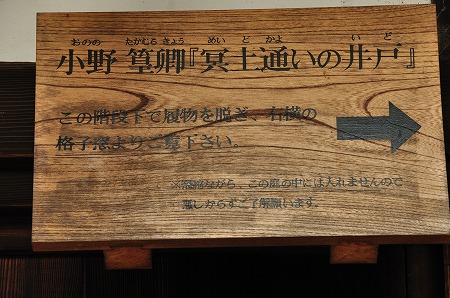 おのの たかむら きょう めい ど かよ い ど
小野 篁卿『冥土通いの井戸』
この階段下で履物を脱ぎ、右横の
格子窓よりご覧下さい。
※残念ながら、この庭の中には入れませんので
悪しからずご了解願います。